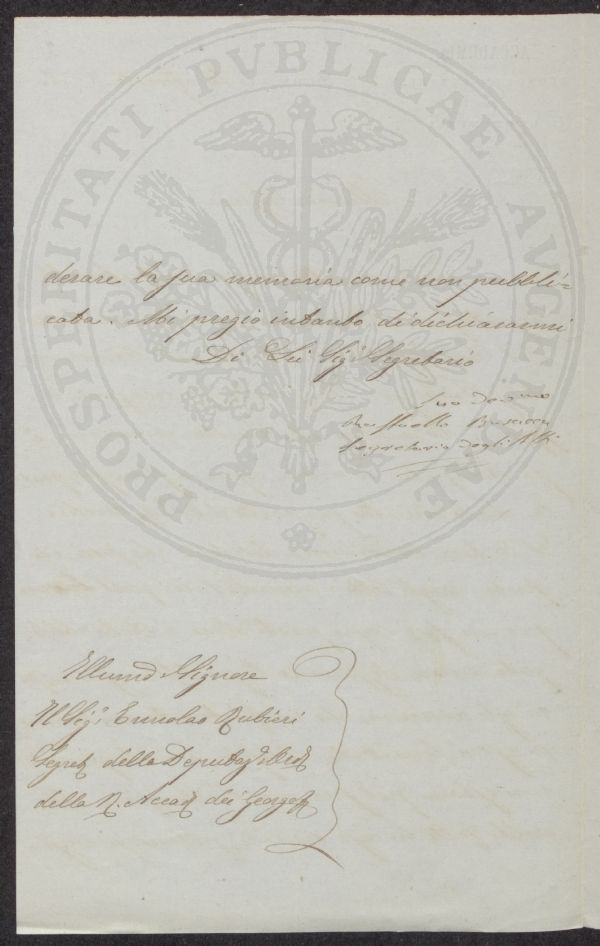 PROSPERITATI PVBLICAE AVGENDAE
derare la sua memoria come non pubbli=
cata. Mi pregio intanto di dichiararmi
Di Lei Sig.r Segretario
Suo Dev.mo
Raffaello
Segretario degli Atti
Illumo Signore
Il Sig.r Ermolao Rubieri
Segret della Deputaz
della R. Accad dei Georgof